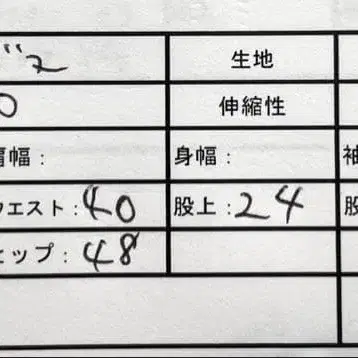 生地
0 伸縮性
肩幅: 身幅: 袖
ウエスト:40 股上:24 股
ヒップ:48